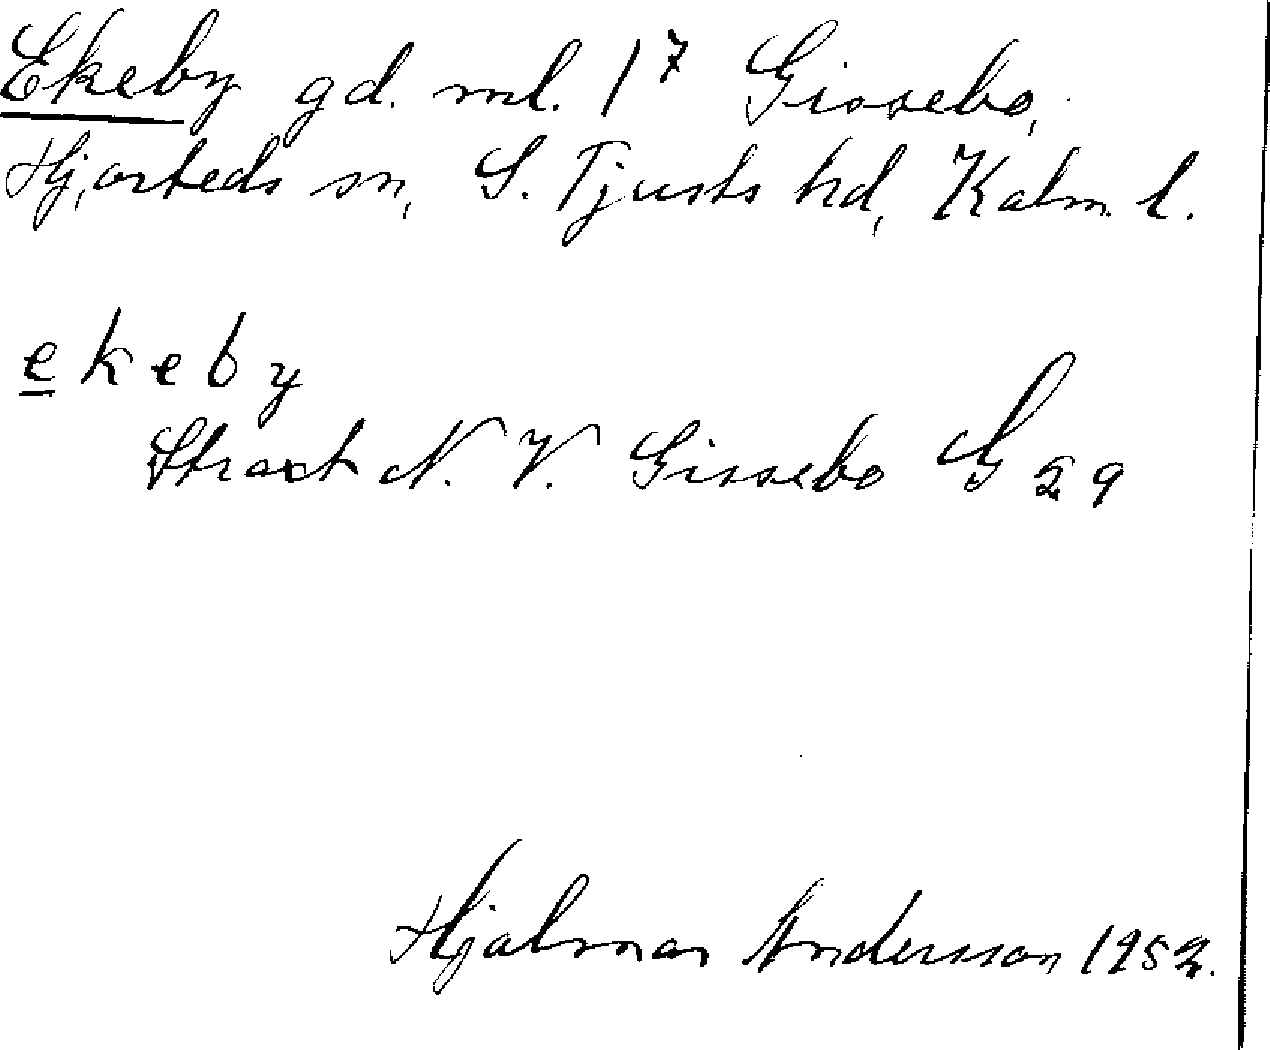 Ekeby gd. ml. 1⁷ Gissebo,
Hjorteds sn, S. Tjusts hd, Kalm. l.
ekeby
Straxt N. V. Gissebo G 29
Hjalmar Andersson 1952.